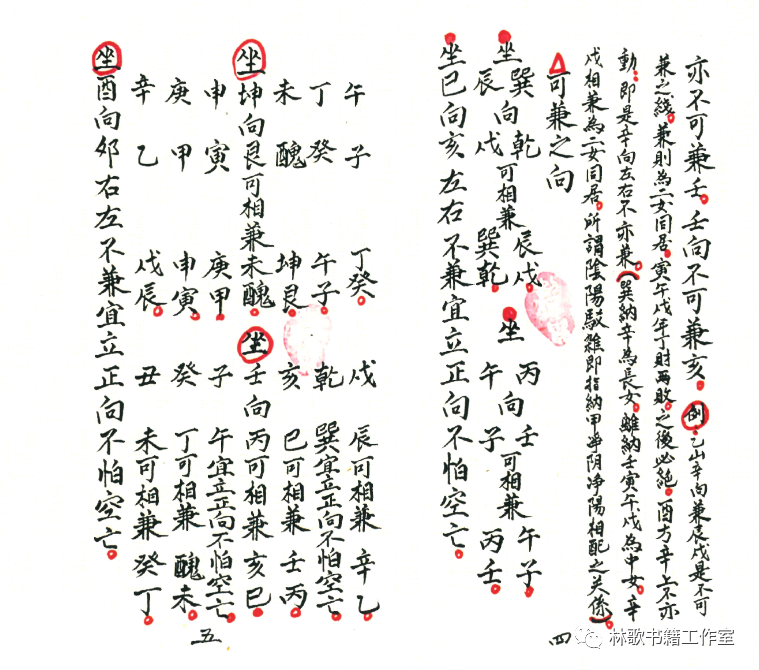 亦不可兼壬。壬向不可兼亥。例。乙山辛向兼辰戌是不可
兼之綫。兼則為二女同居。寅午戌年丁財两敗。之後必絕。酉方辛上不亦
動。即是辛向左右不亦兼。(巽納辛為長女。離納壬寅午戌為中女。辛
戌相兼為二女同居。所謂陰陽駁雜即指納甲净阴净陽相配之关係)。
可兼之向
坐巽向乾可相兼辰戌。坐丙向壬可相兼午子。
辰 戌 巽乾。 午 子 丙壬。
坐巳向亥左右不兼宜立正向不怕空亡。
四
午 子 丁癸。 戌 辰可相兼辛乙。
丁 癸 午子。 乾 巽宜立正向不怕空亡。
未 醜 坤艮。 亥 巳可相兼壬丙。
坐坤向艮可相兼未醜。坐壬向丙可相兼亥巳。
申 寅 庚甲。 子 午宜立正向不怕空亡。
庚 甲 申寅。 癸 丁可相兼醜未。
辛 乙 戌辰。 丑 未可相兼癸丁。
坐酉向夘右左不兼宜立正向不怕空亡。
五
林歌书籍工作室